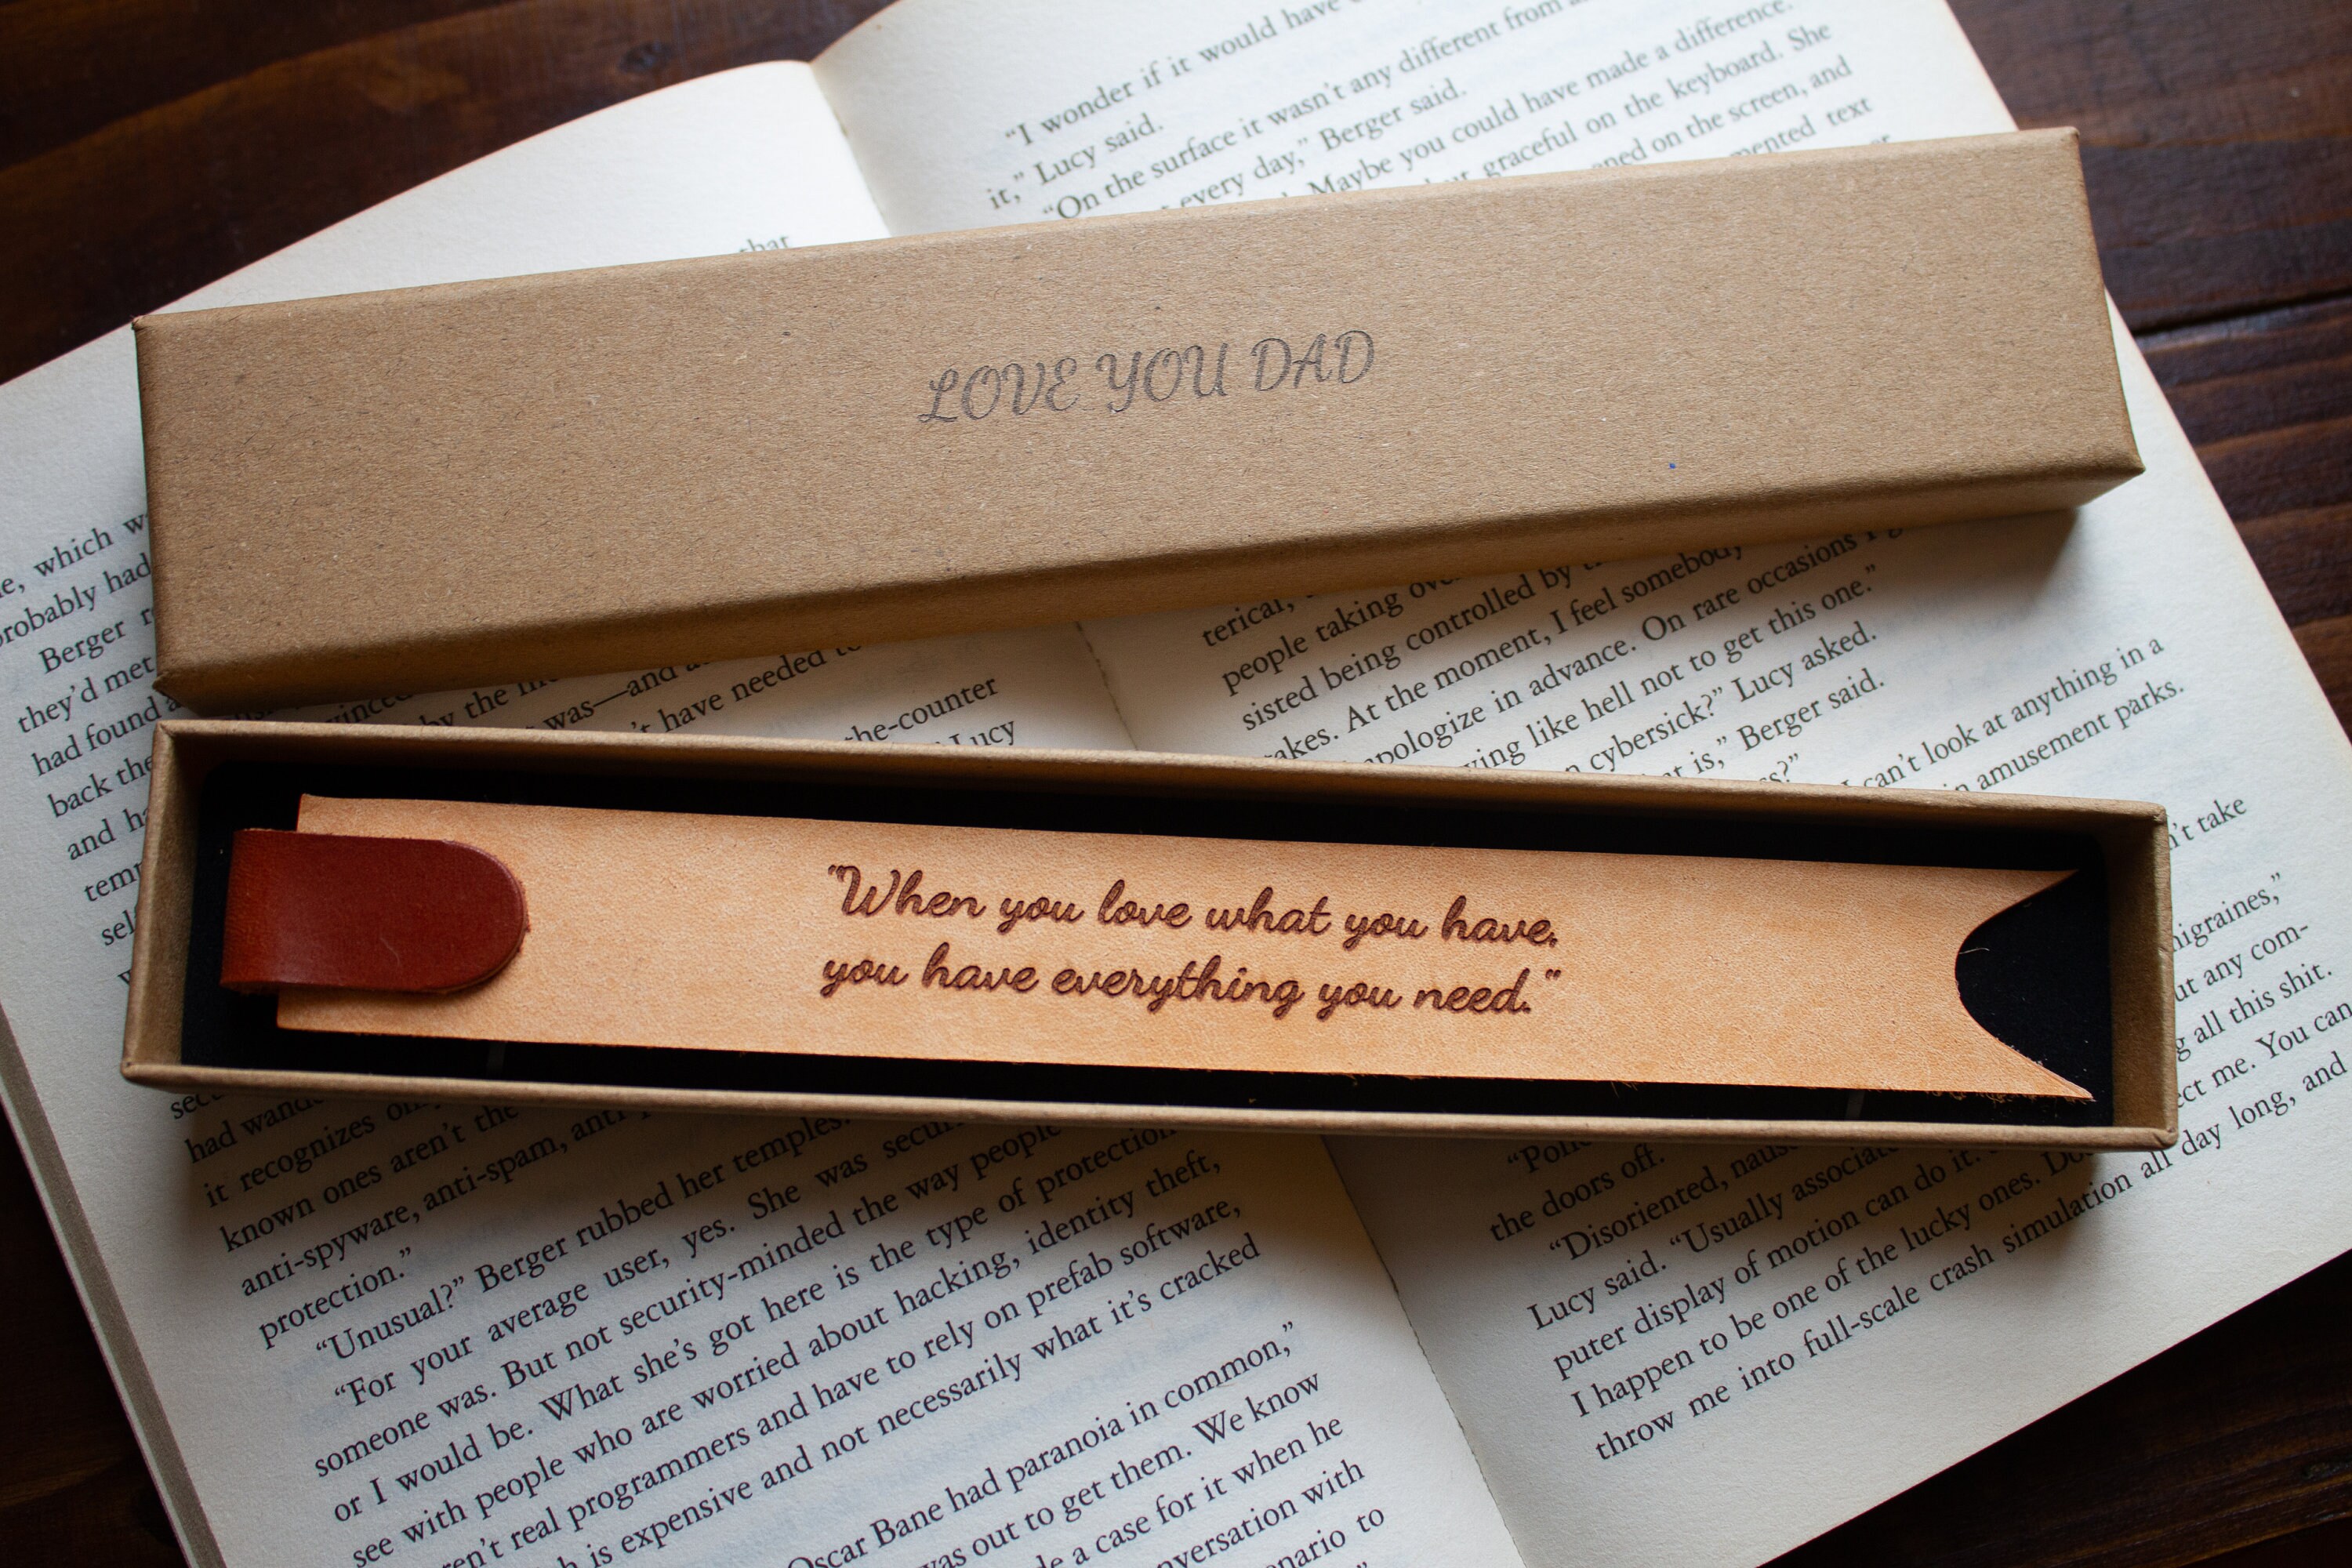 “I wonder if it would have
it,” Lucy said.
“On the surface it wasn’t any different from
every day,” Berger said.
Maybe you could have made a difference.
graceful on the keyboard. She
on the screen, and
text
that
LOVE YOU DAD
which
probably had
Berger
they’d met
had found
back the
and
by the
was—and
have needed
the-counter
Lucy
people taking
sisted being controlled by
At the moment, I feel somebody
apologize in advance. On rare occasions I
like hell not to get this one.”
cybersick?” Lucy asked.
is,” Berger said.
can’t look at anything in a
amusement parks.
take
“When you love what you have,
you have everything you need.”
but any com-
all this shit.
me. You can
all day long, and
had
it recognizes
known ones aren’t the
anti-spyware, anti-spam,
protection.”
“Unusual?” Berger rubbed her temples.
“For your average user, yes. She was
someone was. But not security-minded the way people
or I would be. What she’s got here is the type of protection
see with people who are worried about hacking, identity theft,
real programmers and have to rely on prefab software,
is expensive and not necessarily what it’s cracked
Oscar Bane had paranoia in common,”
was out to get them. We know
a case for it when he
with
to
the doors off.
“Disoriented,
Lucy said. “Usually
puter display of motion can do it.
I happen to be one of the lucky ones.
throw me into full-scale crash simulation